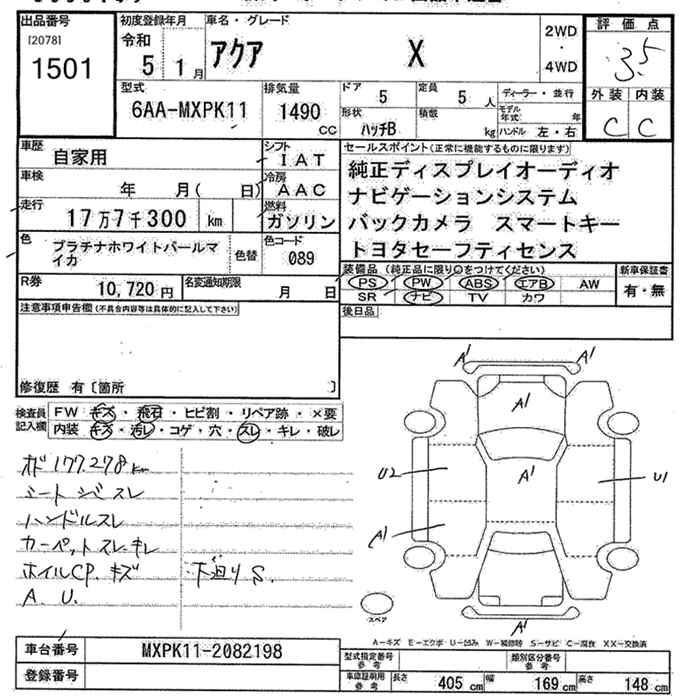 出品番号
[2078]
1501
初度登録年月
令和
5 1月
車名・グレード
アクア X
2WD
・
4WD
評価点
3.5
外装 内装
C C
型式
6AA-MXPK11
排気量
1490
CC
ドア
5
定員
5 人
形状
ハッチB
積載
kg
ディーラー・並行
モデル年式 年
ハンドル 左・右
車歴
自家用
シフト
IAT
車検
年 月( 日)
冷房
AAC
走行
17万7千300 km
燃料
ガソリン
色
プラチナホワイトパールマイカ
色替
色コード
089
R券
10,720円
名変通知期限
月 日
セールスポイント(正常に機能するものに限ります)
純正ディスプレイオーディオ
ナビゲーションシステム
バックカメラ スマートキー
トヨタセーフティセンス
装備品(純正品に限り○をつけてください)
PS PW ABS エアB AW
SR ナビ TV カワ
新車保証書
有・無
後日品
注意事項申告欄(不具合内容等は具体的に記入して下さい)
修復歴 有〔箇所 〕
検査員
記入欄
FW キズ・飛石・ヒビ割・リペア跡・×要
内装 キズ・汚レ・コゲ・穴・スレ・キレ・破レ
オド 177.278km
シート シミ スレ
ハンドルスレ
カーペット スレ.キレ
ホイルCP.キズ 下廻り S.
A. U.
A1 A1
A1
U2 A1 U1
A1
A1
スペア
A-キズ E-エクボ U-凹み W-補修跡 S-サビ C-腐食 XX-交換済
車台番号
MXPK11-2082198
登録番号
型式指定番号
参考
類別区分番号
参考
車庫証明用
参考
長さ 405 cm 幅 169 cm 高さ 148 cm